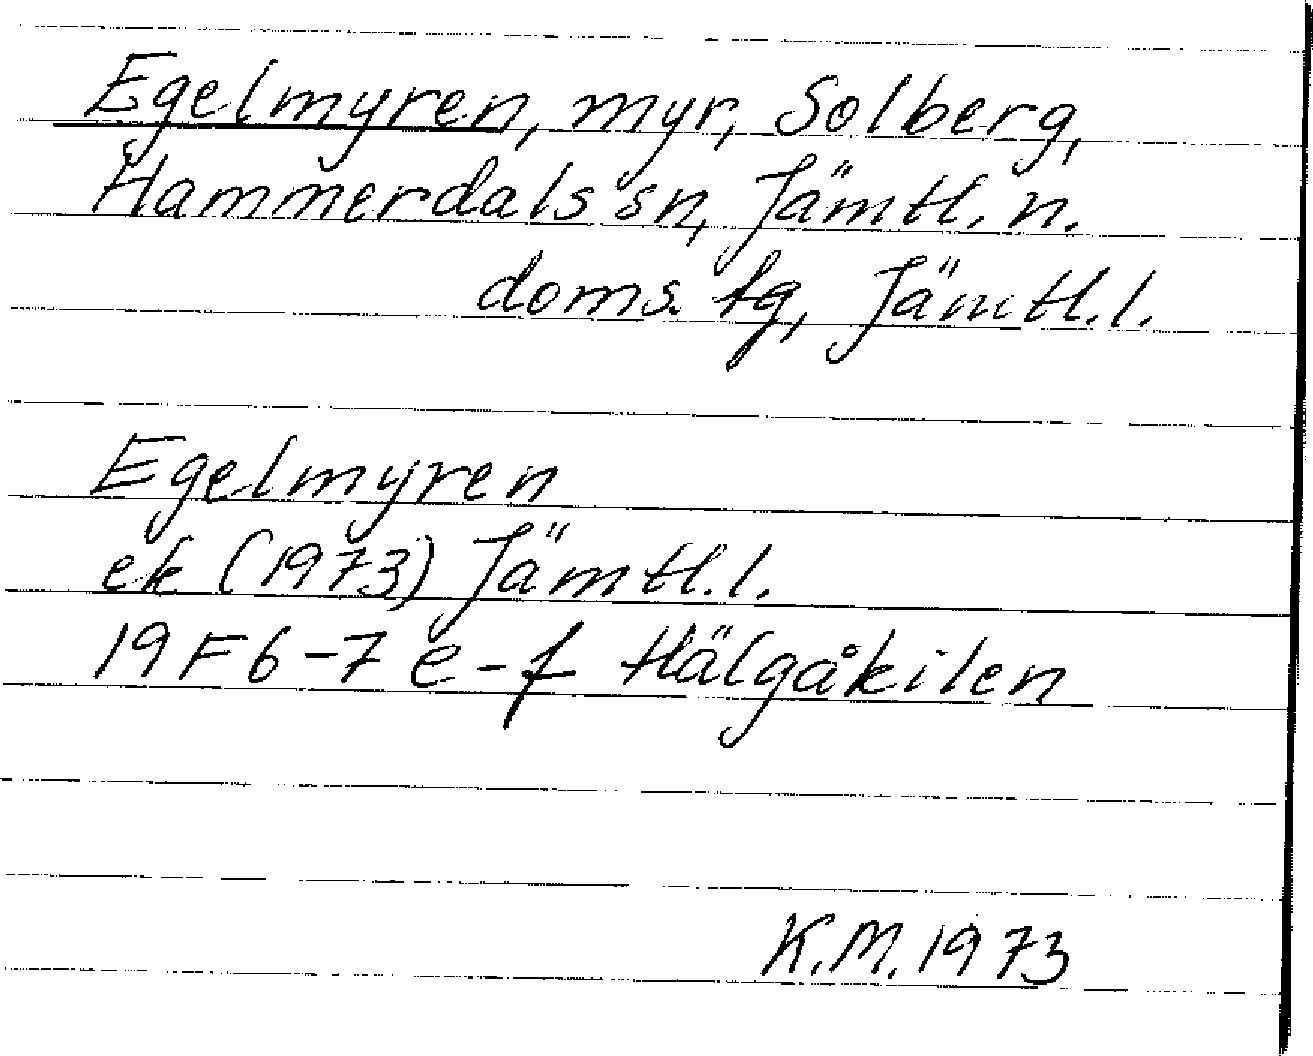 Egelmyren, myr, Solberg,
Hammerdals sn, Jämtl. n.
doms. tg, Jämtl. l.
Egelmyren
ek (1973) Jämtl. l.
19 F 6-7 e-f Hälgåkilen
K.M. 1973